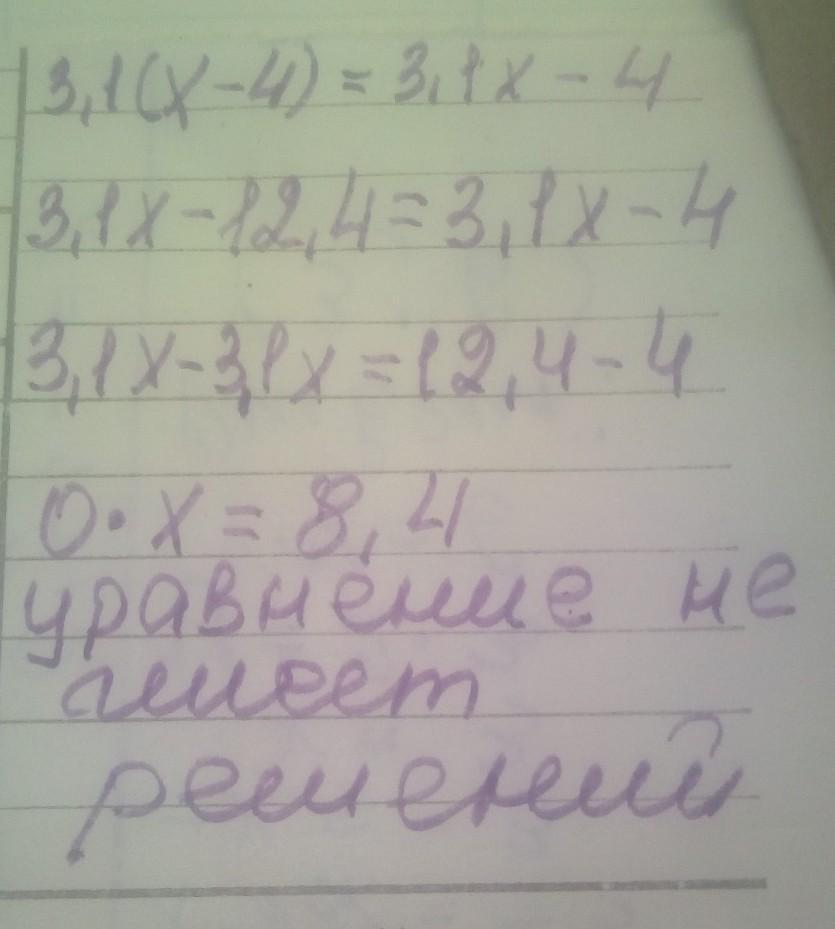 3,1(x-4)=3,1x-4
3,1x-12,4=3,1x-4
3,1x-3,1x=12,4-4
0·x=8,4
уравнение не
имеет
решений